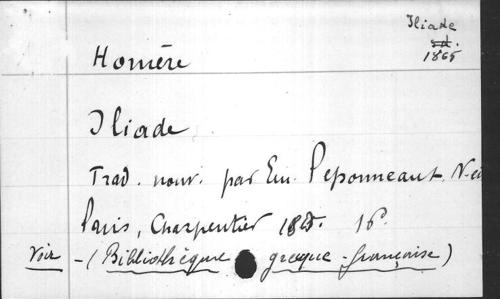 Iliade
s.d.
1865
Homère
Iliade
Trad. nouv. par Em. Pessonneaux. N-
Paris, Charpentier 1865. 16º.
Voir - (Bibliothèque grecque-française)